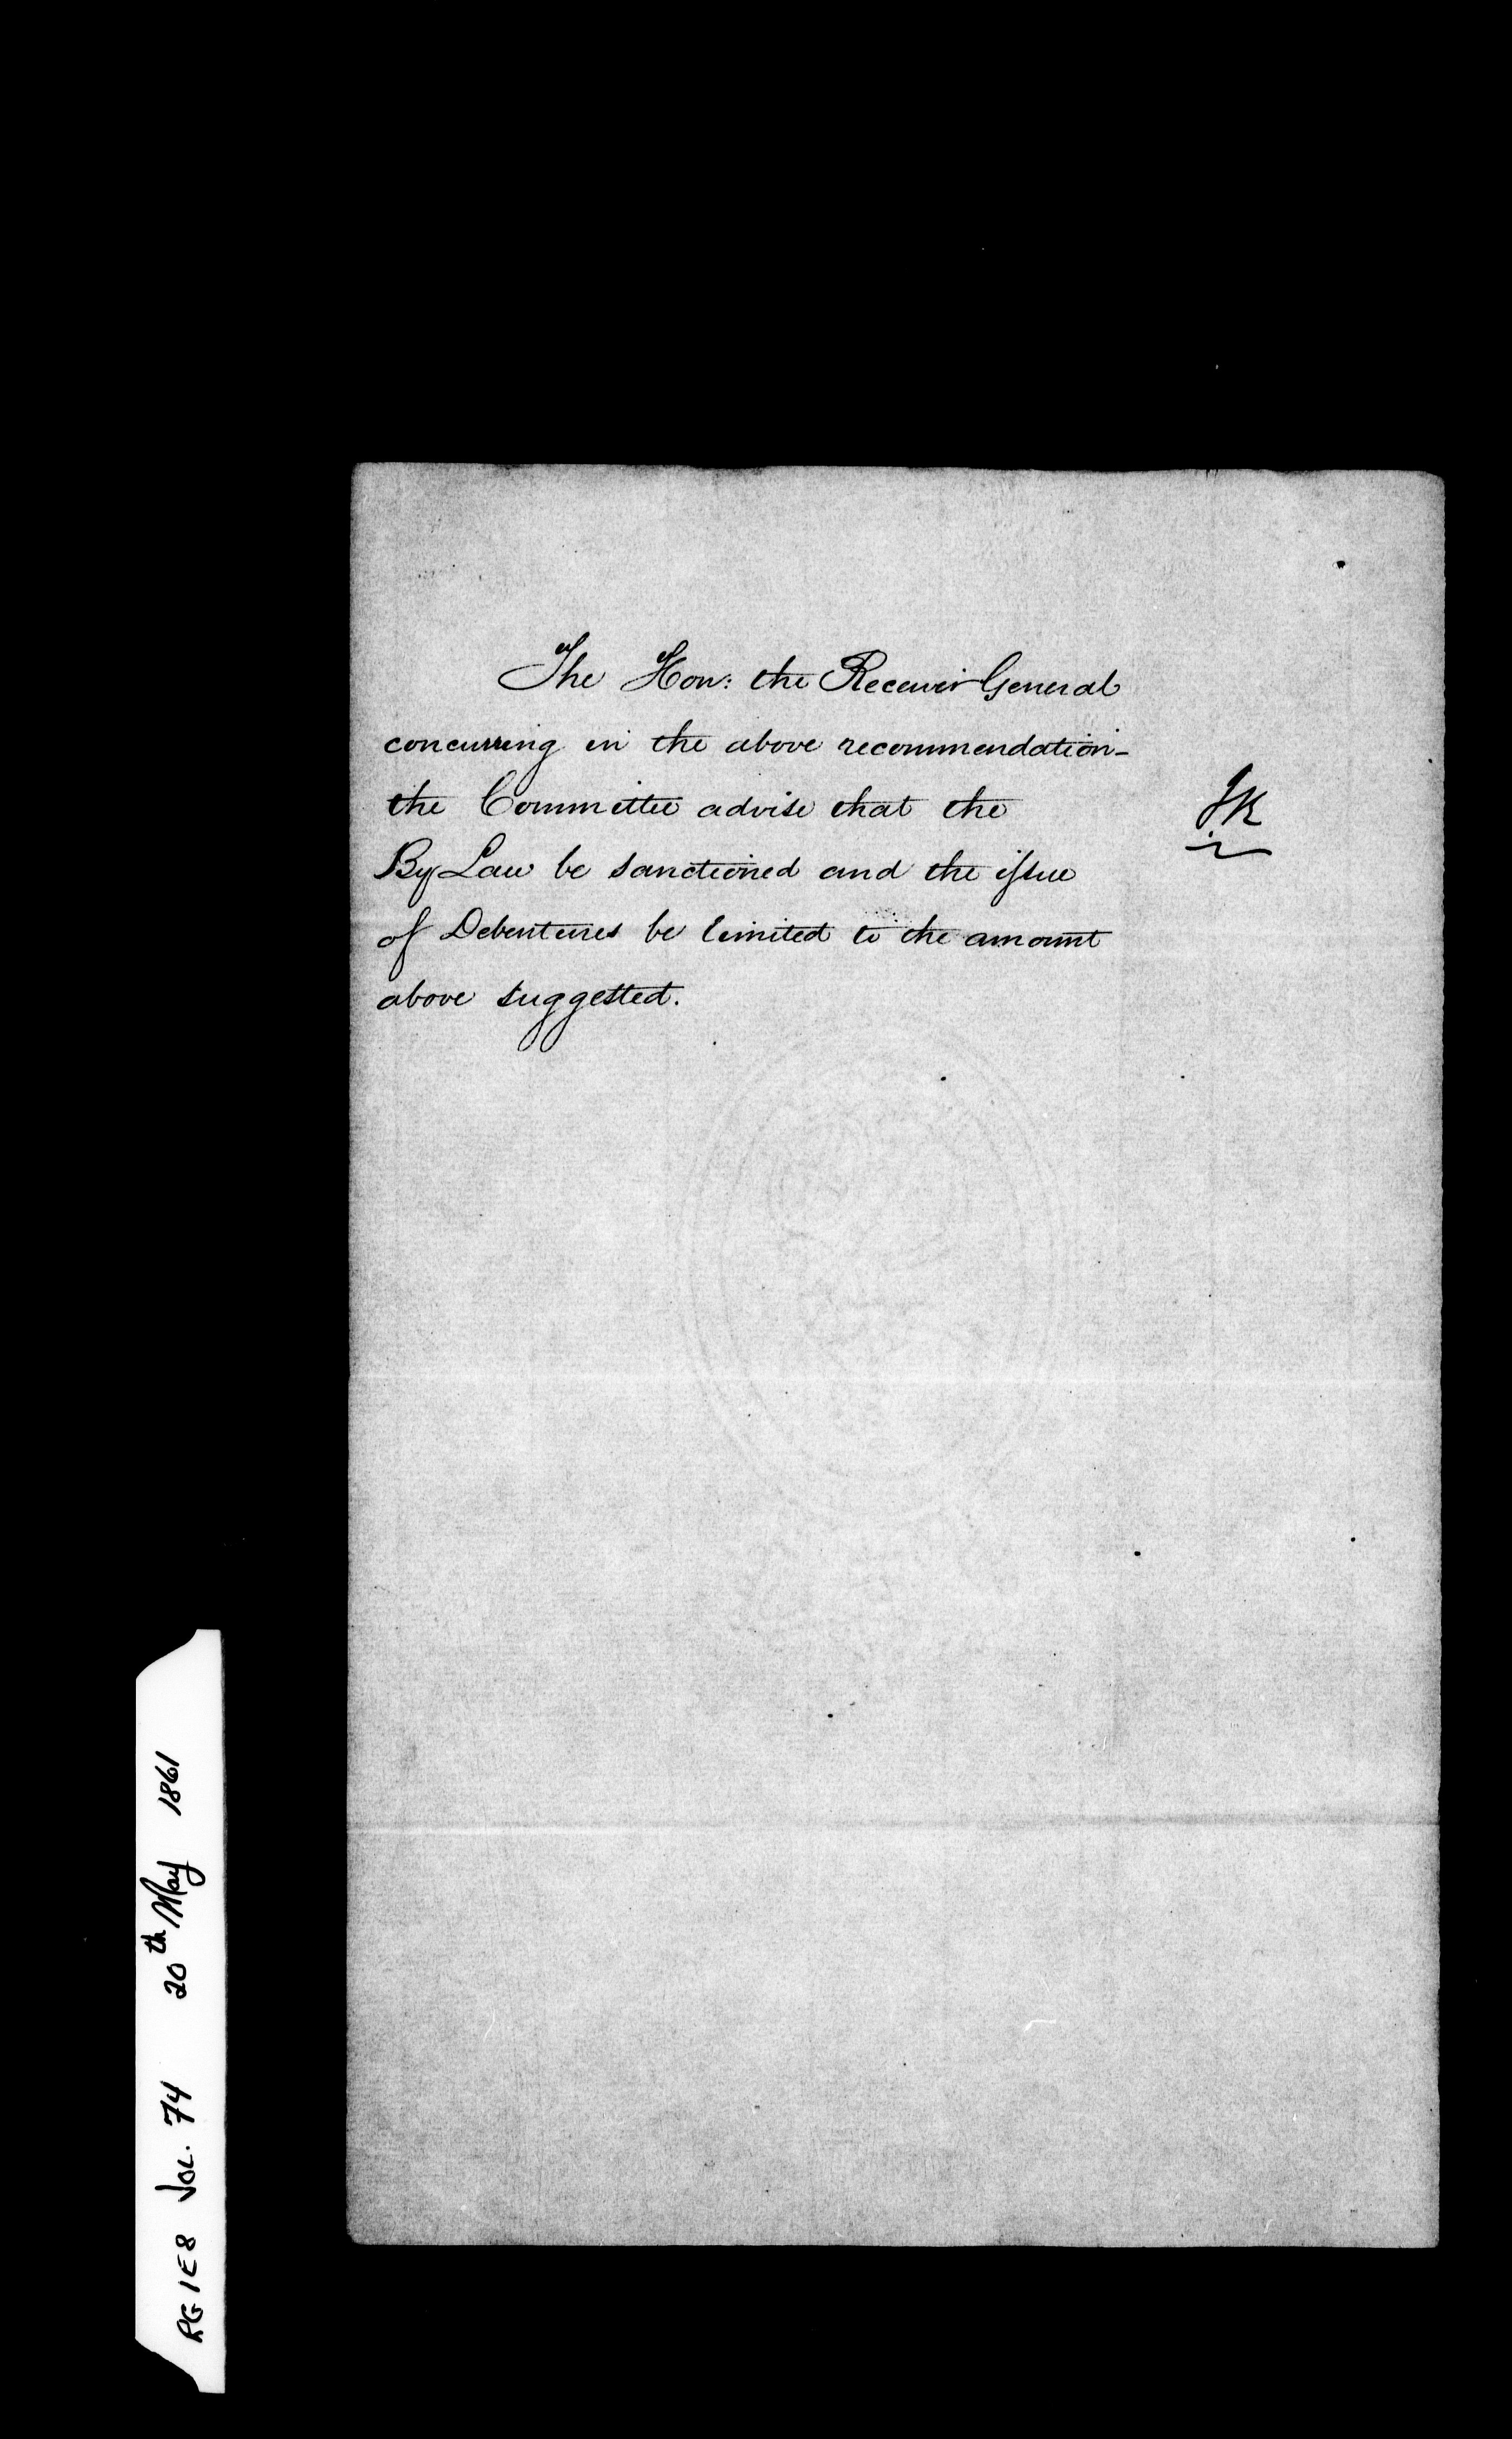 The Hon: the Receiver General
concurring in the above recommendation-
the Committee advise that the
By Law be sanctioned and the issue
of Debentures be limited to the amount
above suggested.
RG 1 E 8 VOL. 74 20th May 1861